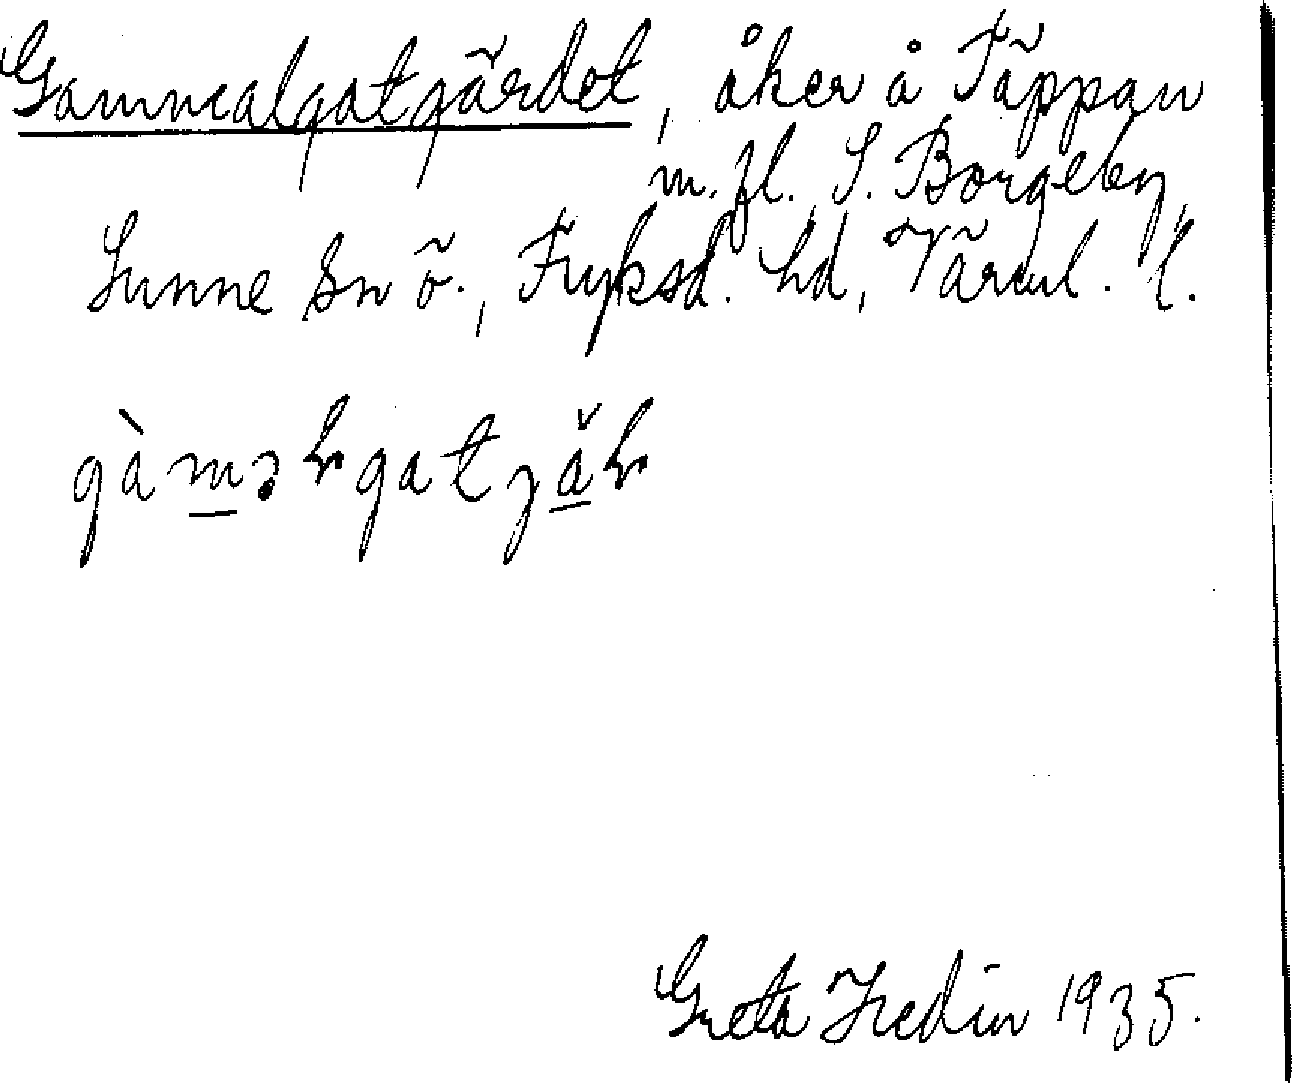 Gammalgatgärdet, åker å Täppan
m. fl. S. Borgeby,
Sunne sn ö., Fryksd. hd, Värml. l.
Greta Hedin 1935.